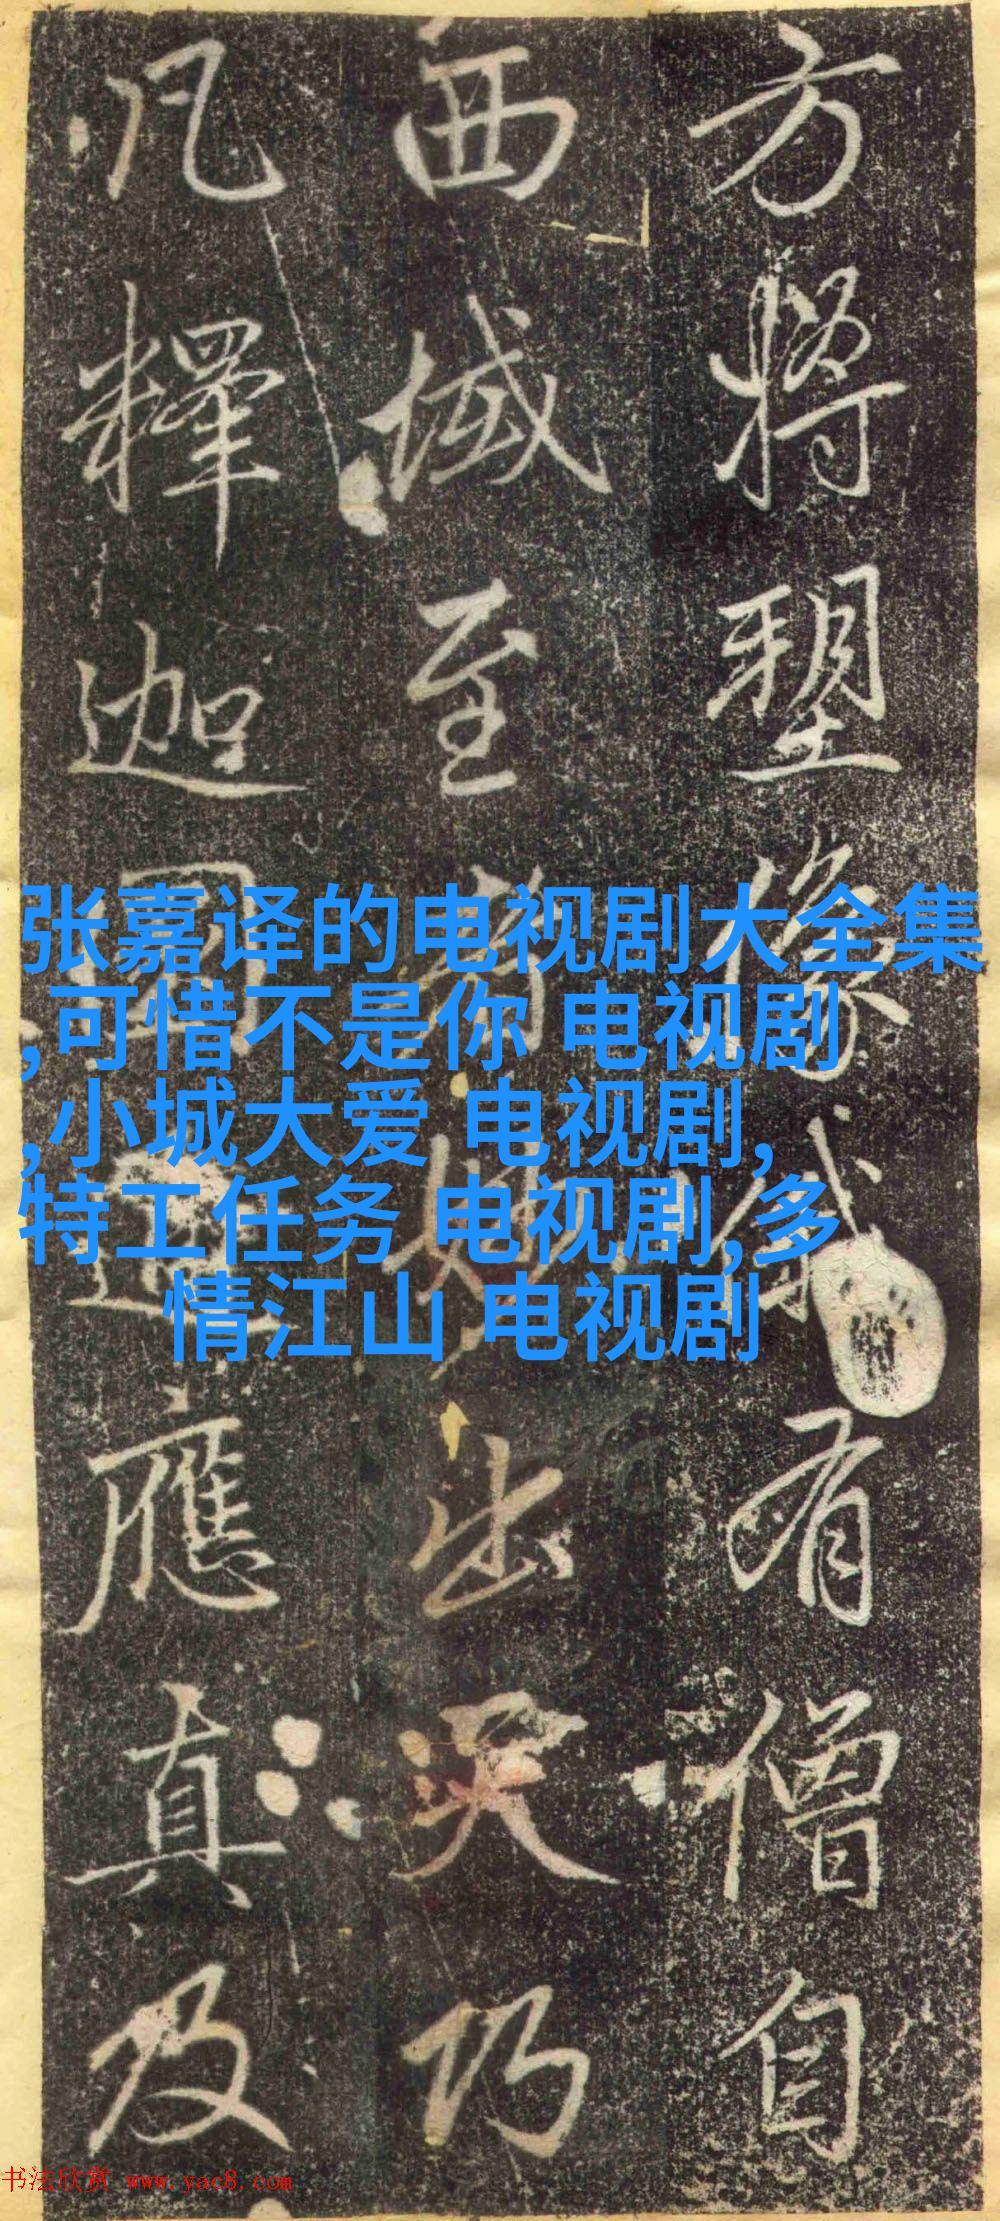 方將塑像俄有僧自
西域至者妙出天巧
凡釋迦圓通應真及
张嘉译的电视剧大全集
,可惜不是你 电视剧
,小城大爱 电视剧,
特工任务 电视剧,多
情江山 电视剧
书法欣赏 www.yac8.com